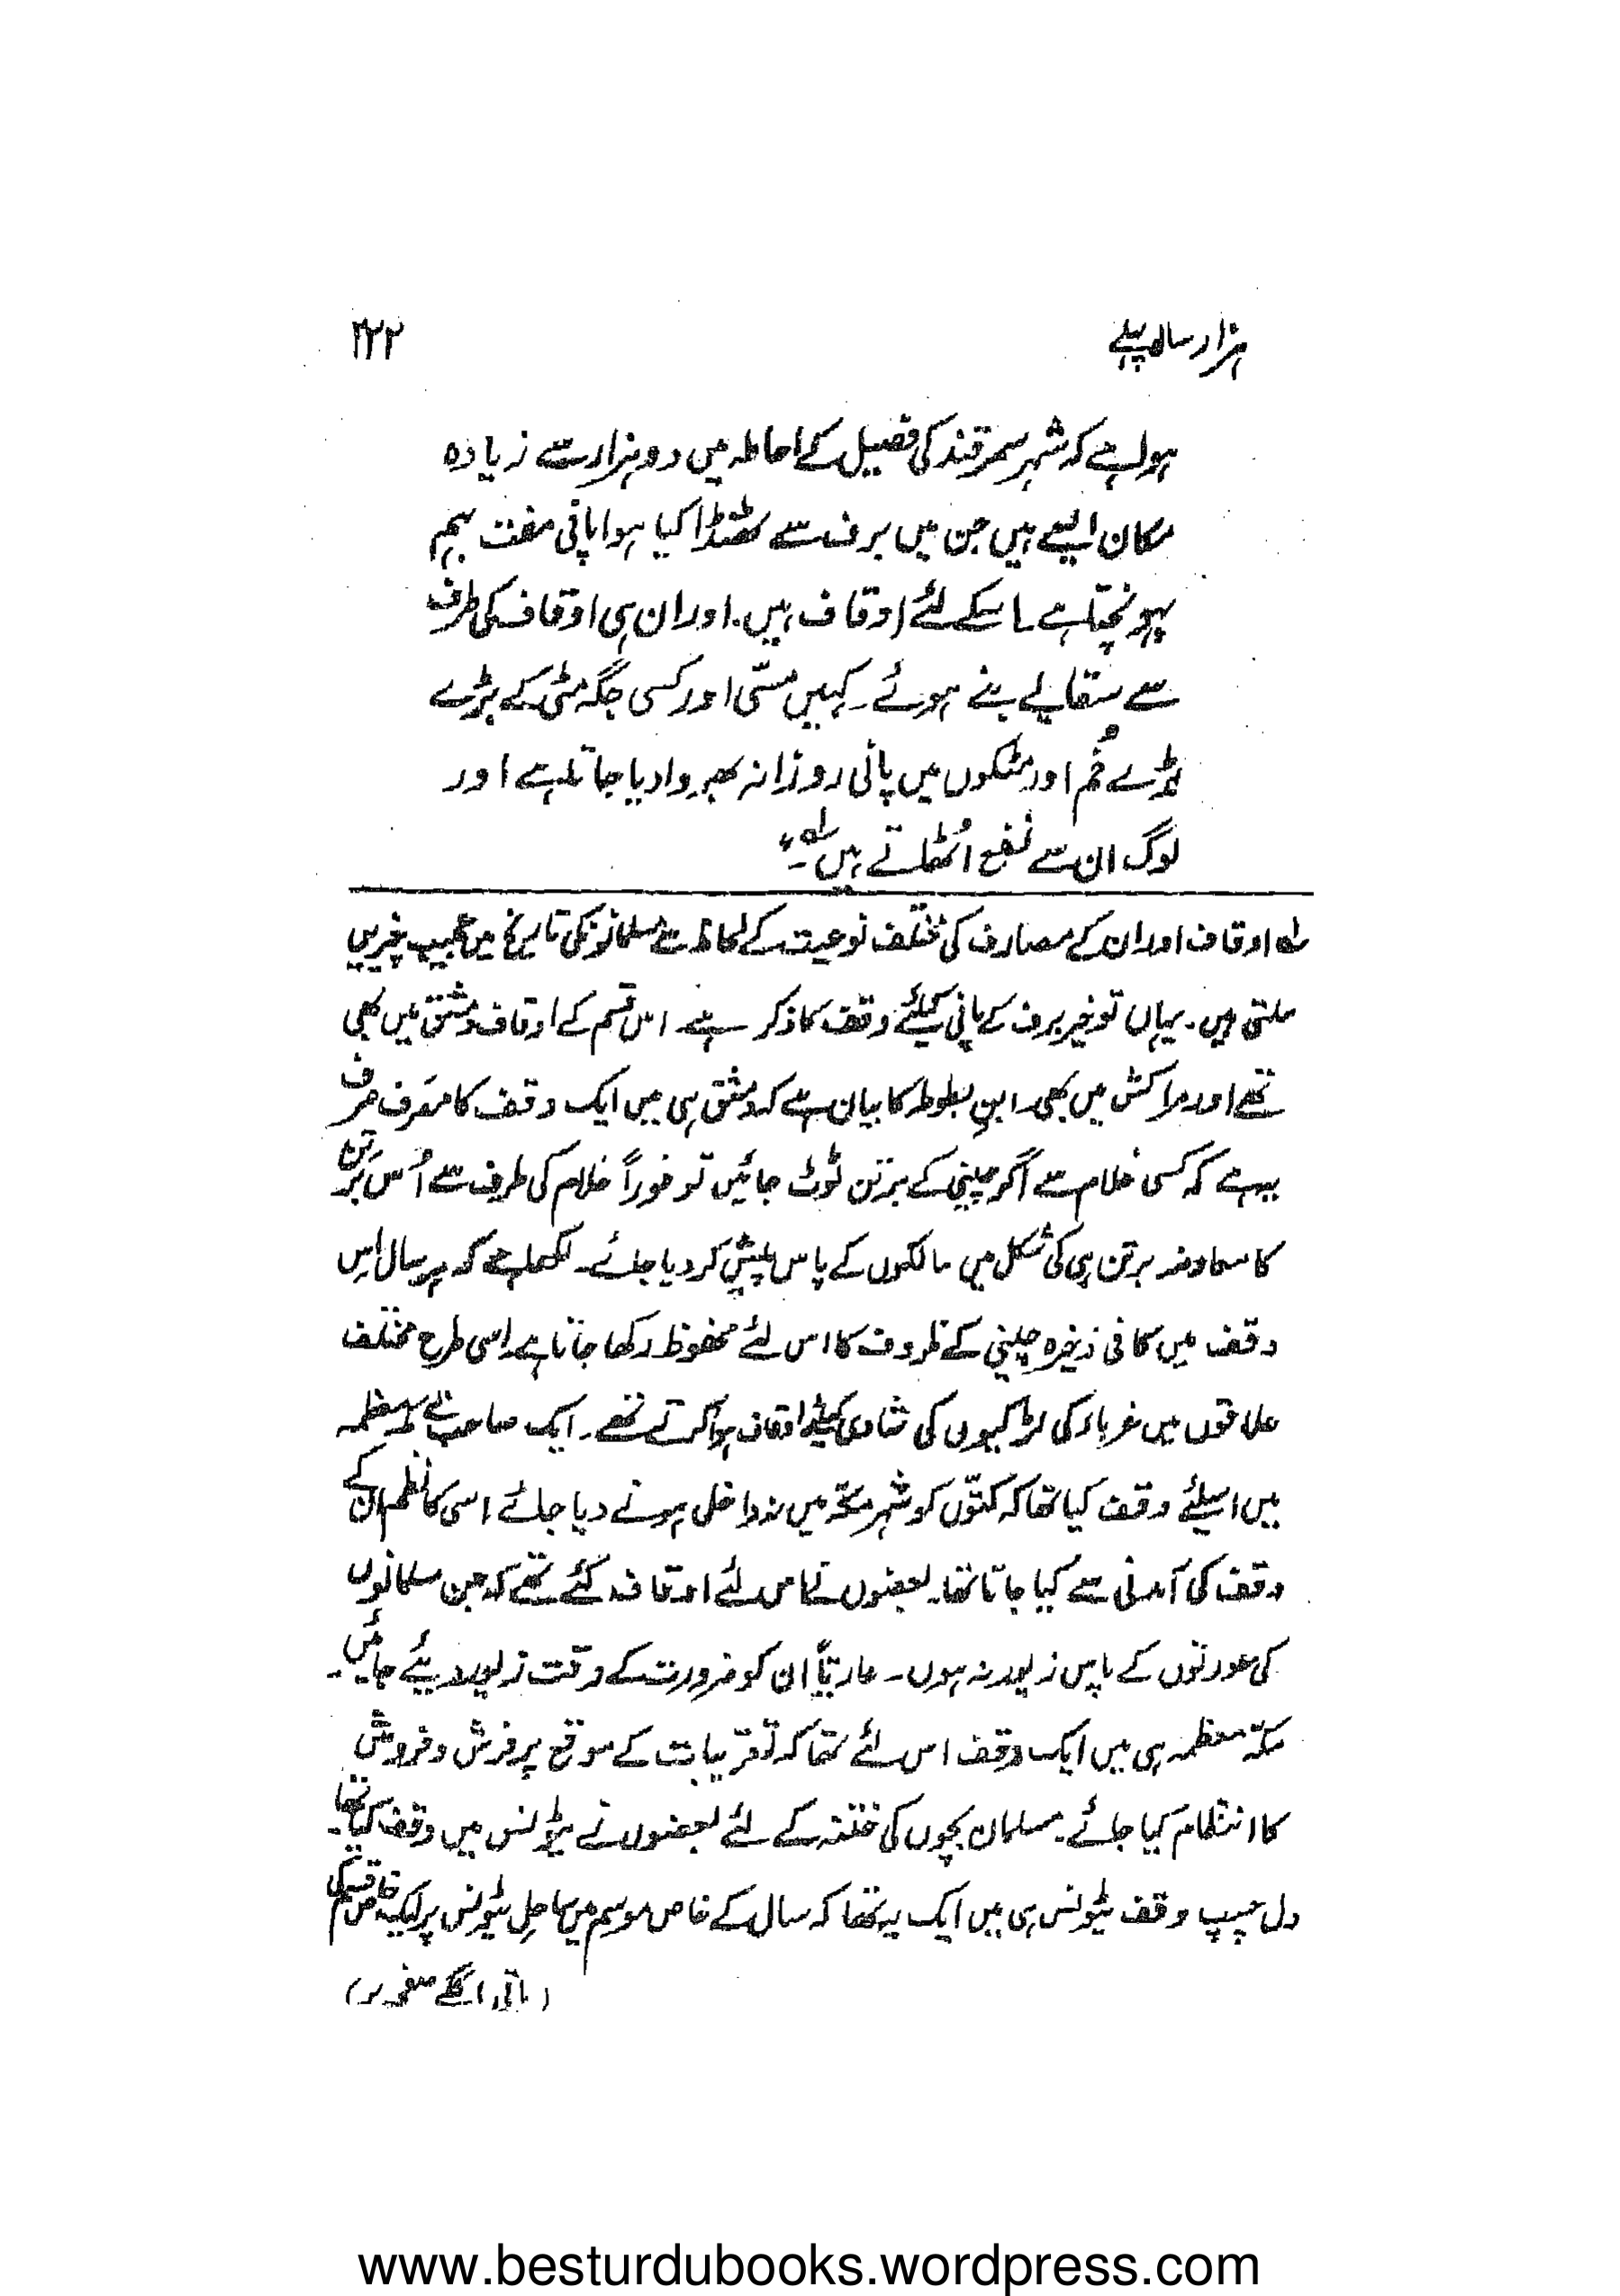 ہزار سال پہلے
۲۲۲
ہوا ہے کہ شہر سمرقند کی فصیل کے احاطہ میں دو ہزار سے زیادہ
مکان ایسے ہیں جن میں برف سے ٹھنڈا کیا ہوا پانی مفت بہم
پہونچتا ہے ۔ اسکے لئے اوقاف ہیں۔ اور ان ہی اوقاف کی طرف
سے سقایے بنے ہوئے ۔ کہیں مسّی اور کسی جگہ مٹی کے بڑے
بڑے خُم اور مٹکوں میں پانی روزانہ بھروا دیا جاتا ہے اور
لوگ ان سے نفع اُٹھاتے ہیں ۔ لہ "
لہ اوقاف اور ان کے مصارف کی مختلف نوعیت کے لحاظ سے مسلمانوں کی تاریخ میں عجیب چیزیں
ملتی ہیں۔ یہاں تو خیر برف کے پانی کیلئے وقف کا ذکر ہے ۔ اس قسم کے اوقاف دمشق میں بھی
تھے اور مراکش میں بھی۔ ابنِ بطوطہ کا بیان ہے کہ دمشق ہی میں ایک وقف کا مَصرف صرف
یہ ہے کہ کسی غلام سے اگر چینی کے برتن ٹوٹ جائیں تو فوراً غلام کی طرف سے اُس برتن
کا معاوضہ برتن ہی کی شکل میں مالکوں کے پاس پیش کر دیا جائے۔ لکھا ہے کہ ہر سال اِس
وقف میں کافی ذخیرہ چینی کے ظروف کا اس لئے محفوظ رکھا جاتا ہے اسی طرح مختلف
علاقوں میں غرباء کی لڑکیوں کی شادی کیلئے اوقاف ہوا کرتے تھے ۔ ایک صاحب نے مکہ معظمہ
میں اسلئے وقف کیا تھا کہ کتّوں کو شہر مکّہ میں نہ داخل ہونے دیا جائے اسی کا نظم ان کے
وقف کی آمدنی سے کیا جاتا تھا۔ بعضوں نے اس لئے اوقاف کئے تھے کہ جن مسلمانوں
کی عورتوں کے پاس زیور نہ ہوں ۔ عاریتاً ان کو ضرورت کے وقت زیور دیئے جائیں ۔
مکّہ معظمہ ہی میں ایک وقف اس لئے تھا کہ تقریبات کے موقع پر فرش و فروش
کا انتظام کیا جائے ۔ مسلمان بچوں کی ختنہ کے لئے بعضوں نے ٹیونس میں وقف کیا تھا۔
دل چسپ وقف ٹیونس ہی میں ایک یہ تھا کہ سال کے خاص موسم میں ساحلِ ٹیونس پر ایک خاص قسم کی
( باقی اگلے صفحہ پر )
www.besturdubooks.wordpress.com